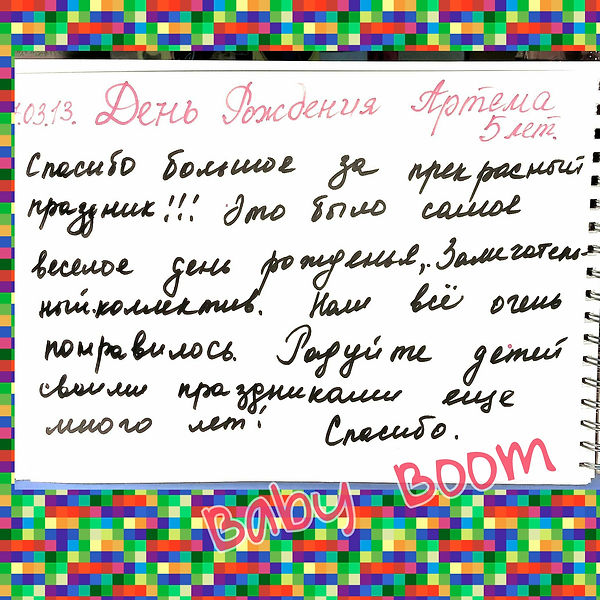 .03.13. День Рождения Артема
5 лет.
Спасибо большое за прекрасный
праздник!!! Это было самое
веселое день рожденья,. Замечатель-
ный коллектив. Нам всё очень
понравилось. Радуйте детей
своими праздниками еще
много лет! Спасибо.
Baby Boom